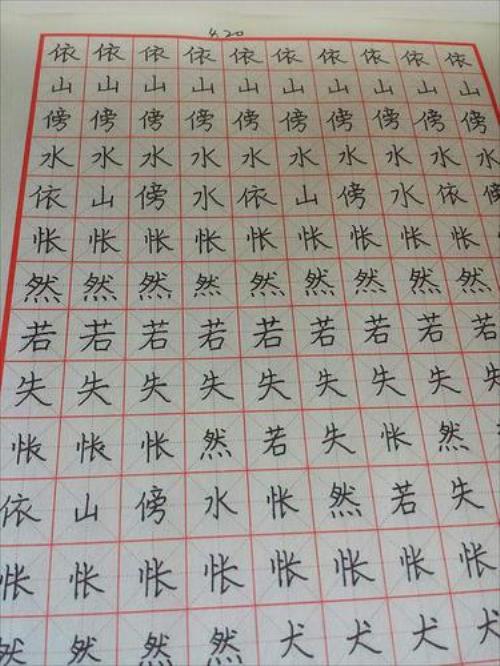 4.20
依依依依依依依依依
山山山山山山山山山
傍傍傍傍傍傍傍傍傍
水水水水水水水水水
依山傍水依山傍水依傍
怅怅怅怅怅怅怅怅怅
然然然然然然然然然
若若若若若若若若若
失失失失失失失失失
怅怅怅然若失怅然
依山傍水怅然若失
怅怅怅怅怅怅怅怅
然然然然犬犬犬犬